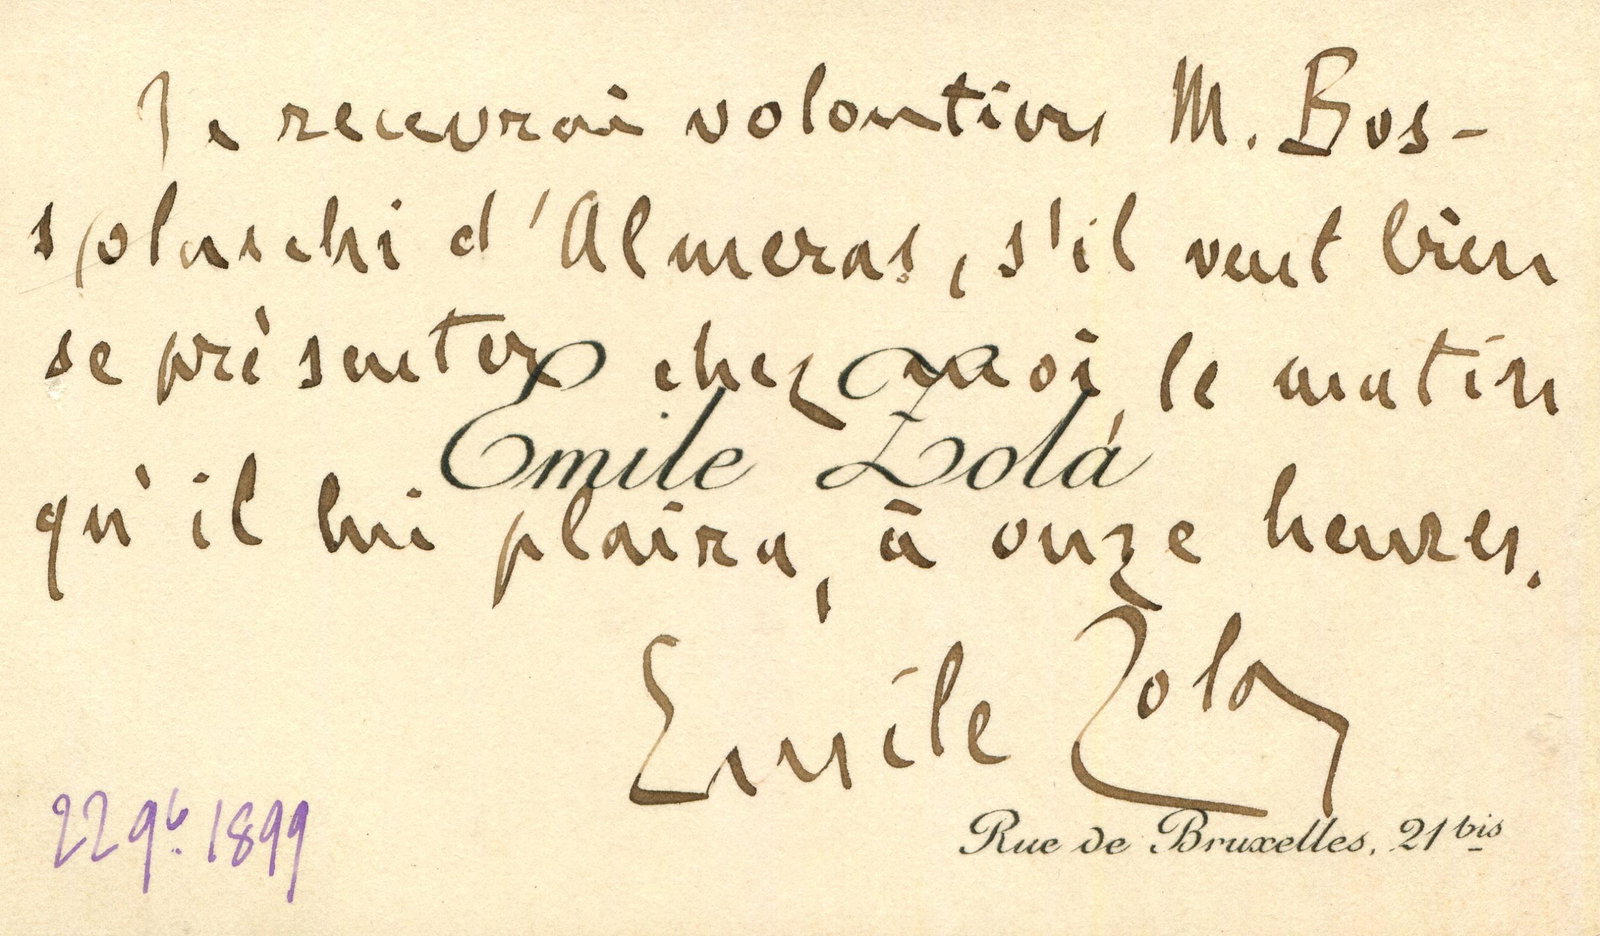 Je recevrai volontiers M. Bos-
splaschi d'Almeras, s'il veut bien
se présenter chez moi, le matin
Emile Zola
qu'il lui plaira, à onze heures.
Emile Zola
Rue de Bruxelles, 21 bis
22 9b. 1899